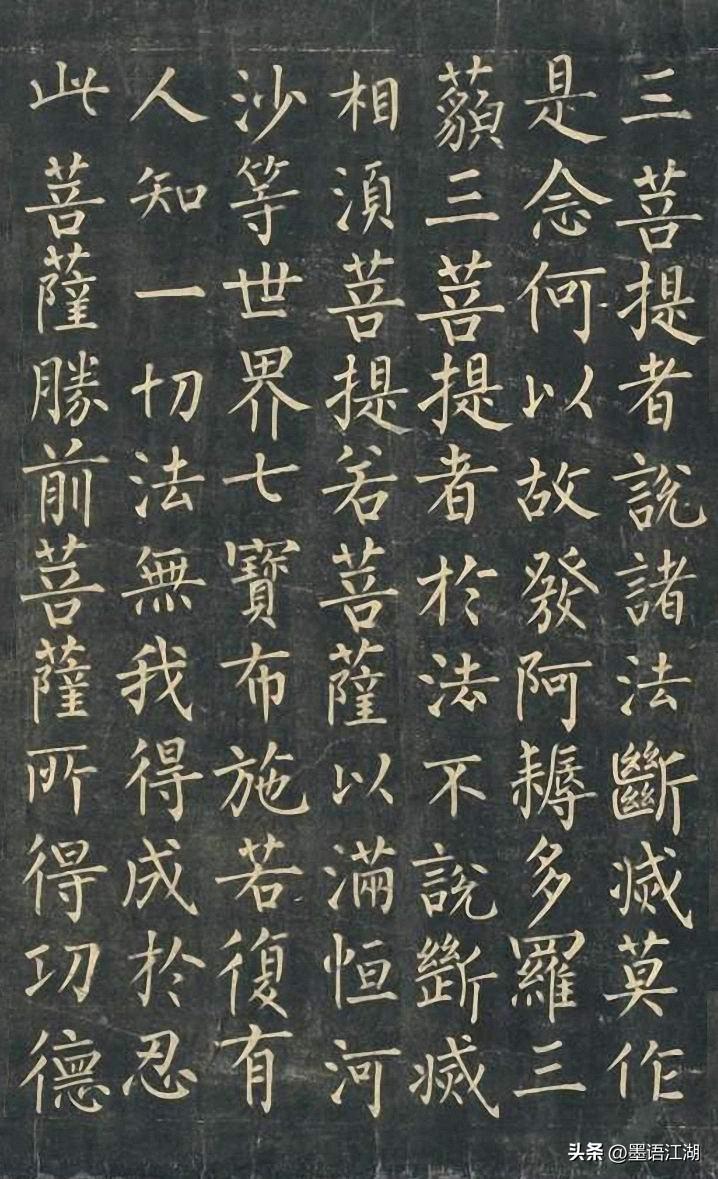 三菩提者說諸法斷滅莫作
是念何以故發阿耨多羅三
藐三菩提者於法不說斷滅
相須菩提若菩薩以滿恒河
沙等世界七寶布施若復有
人知一切法無我得成於忍
此菩薩勝前菩薩所得功德
头条 @墨语江湖